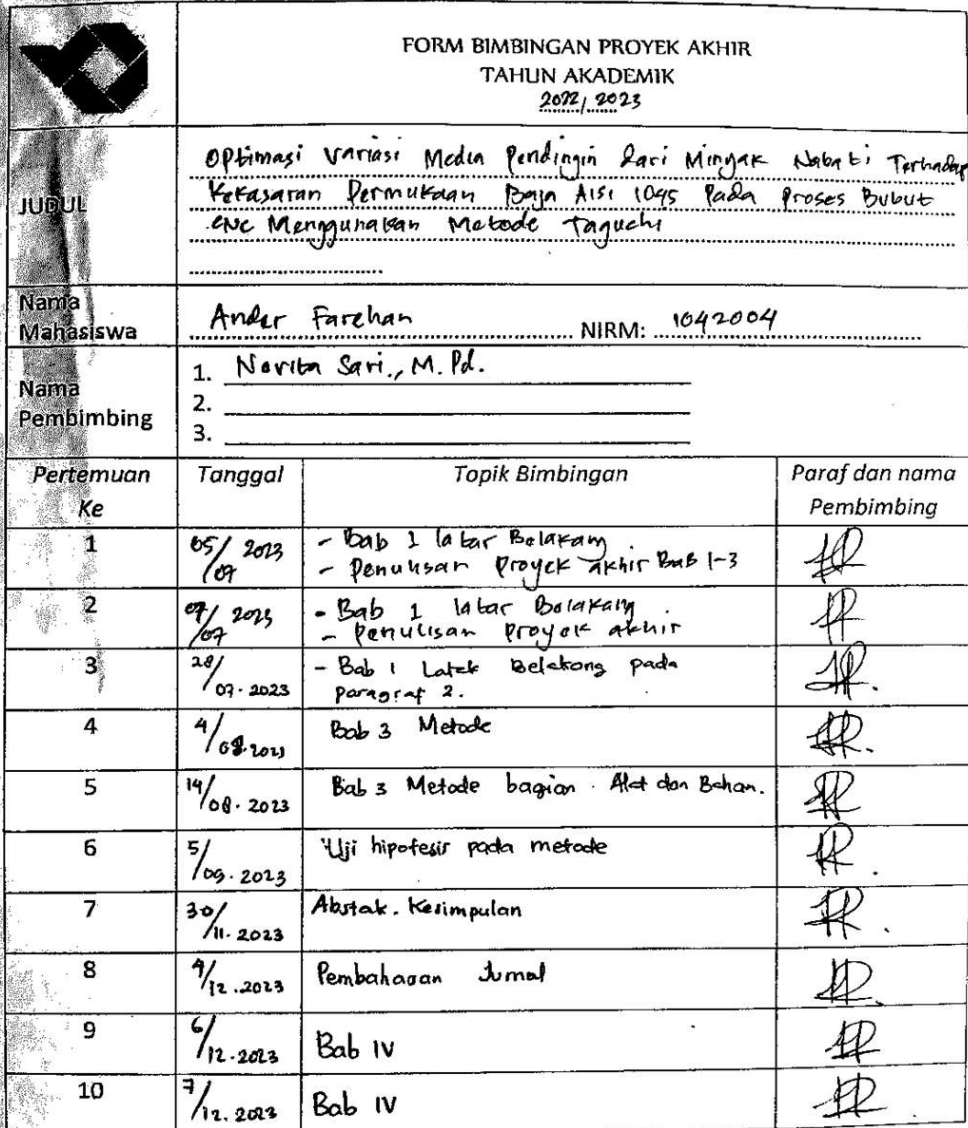 FORM BIMBINGAN PROYEK AKHIR
TAHUN AKADEMIK
2022/2023
JUDUL
Optimasi Variasi Media Pendingin Dari Minyak Nabati Terhadap
Kekasaran Permukaan Baja AISI 1045 Pada Proses Bubut
CNC Menggunakan Metode Taguchi
Nama
Mahasiswa
Andar Farehan NIRM: 1042004
Nama
Pembimbing
1. Novita Sari., M.Pd.
2.
3.
Pertemuan Ke Tanggal Topik Bimbingan Paraf dan nama Pembimbing
1 05/07 2023 - Bab 1 latar Belakang
- Penulisan Proyek akhir Bab 1-3
2 07/07 2023 - Bab 1 latar Belakang
- Penulisan Proyek akhir
3 28/07.2023 - Bab 1 Latek Belakong pada
paragraf 2.
4 4/08.2023 Bab 3 Metode
5 14/08.2023 Bab 3 Metode bagian Alat dan Bahan.
6 5/09.2023 Uji hipotesis pada metode
7 30/11.2023 Abstak. Kesimpulan
8 4/12.2023 Pembahasan Jurnal
9 6/12.2023 Bab IV
10 7/12.2023 Bab IV